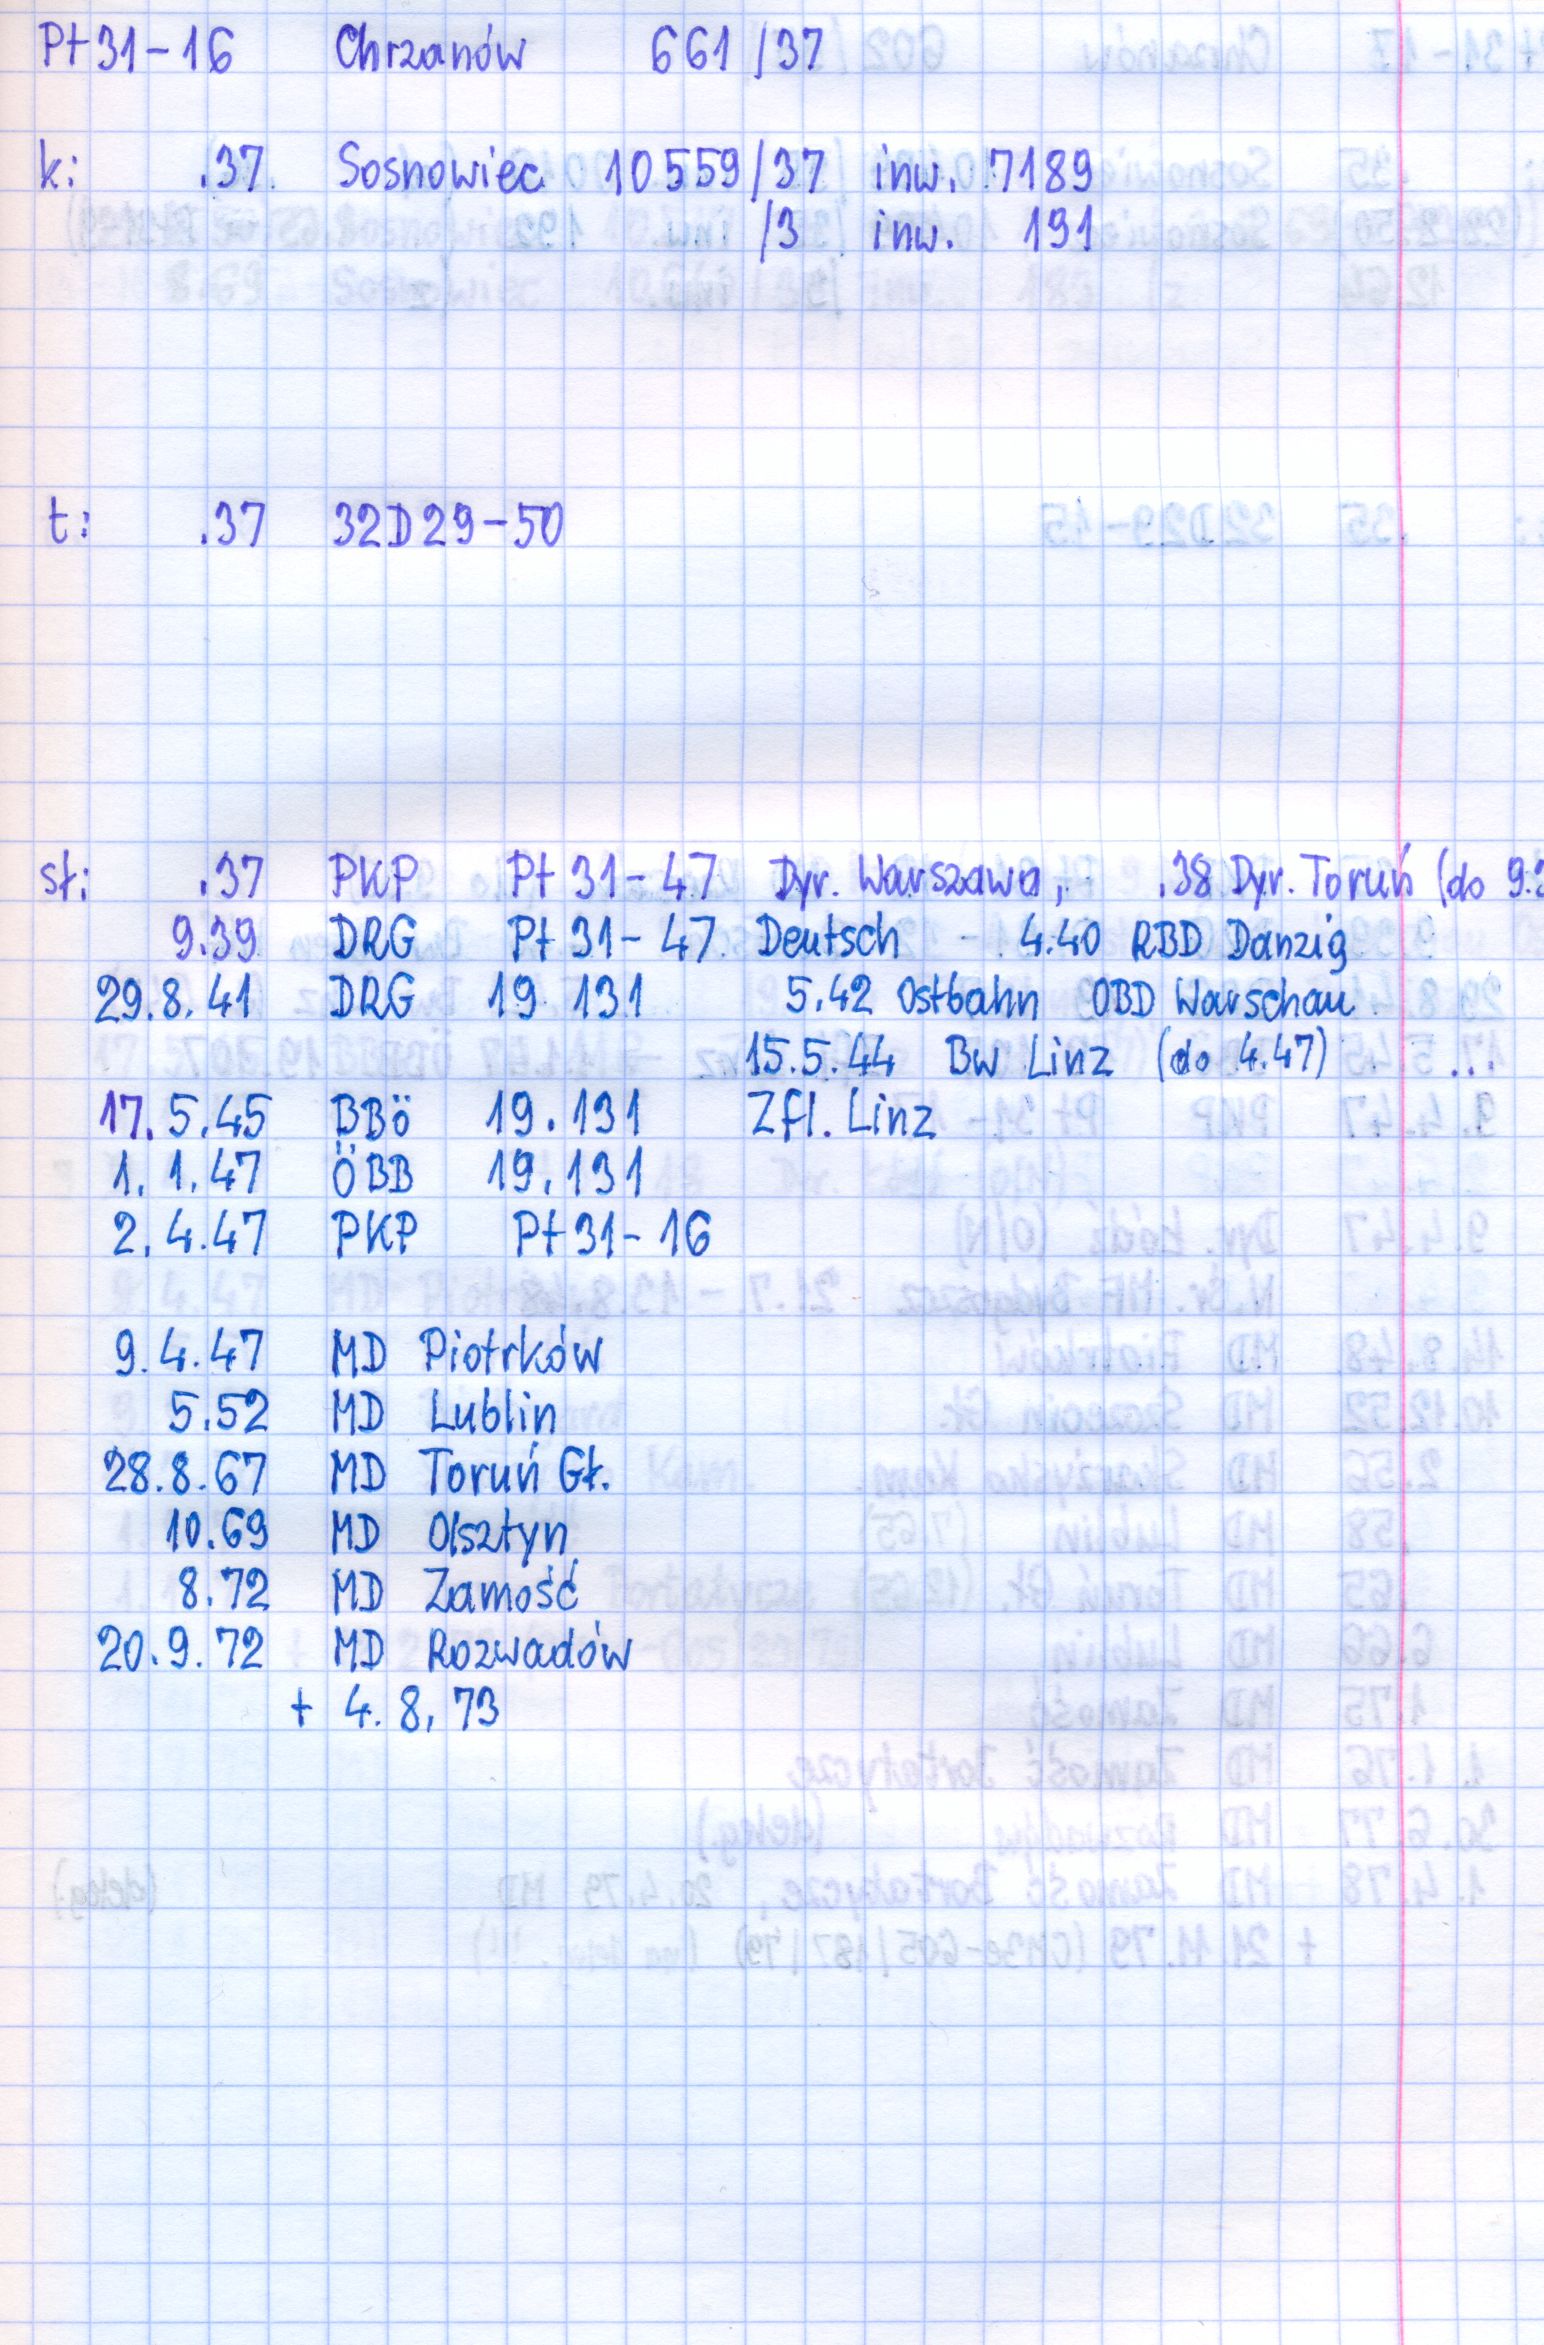 Pt31-16 Chrzanów 661/37
k: .37 Sosnowiec 10559/37 inw. 7189
/3 inw. 191
t: .37 32D29-50
sł: .37 PKP Pt 31-47 Dyr. Warszawa, .38 Dyr. Toruń (do 9.3
9.39 DRG Pt 31-47 Deutsch - 4.40 RBD Danzig
29.8.41 DRG 19 131 5.42 Ostbahn OBD Warschau
15.5.44 Bw Linz (do 4.47)
17.5.45 BBö 19.131 Zfl. Linz
1.1.47 ÖBB 19.131
2.4.47 PKP Pt31-16
9.4.47 MD Piotrków
5.52 MD Lublin
28.8.67 MD Toruń Gł.
10.69 MD Olsztyn
8.72 MD Zamość
20.9.72 MD Rozwadów
+ 4.8,73